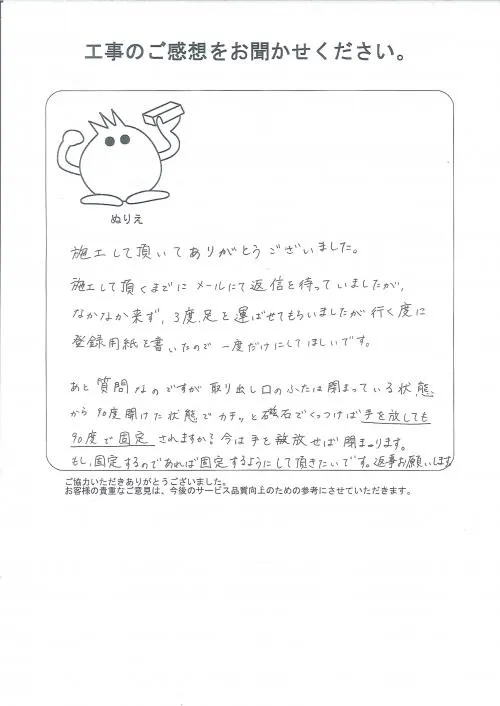 工事のご感想をお聞かせください。
ぬりえ
施工して頂いてありがとうございました。
施工して頂くまでに メールにて返信を待っていましたが、
なかなか来ず、3度、足を運ばせてもらいましたが行く度に
登録用紙を書いたので 一度だけにしてほしいです。
あと質問なのですが 取り出し口のふたは閉まっている状態
から90度開けた状態でカチッと磁石でくっつけば手を放しても
90度で固定されますか?今は手を放せば閉まります。
もし、固定するのであれば固定するようにして頂きたいです。返事お願いします
ご協力いただきありがとうございました。
お客様の貴重なご意見は、今後のサービス品質向上のための参考にさせていただきます。